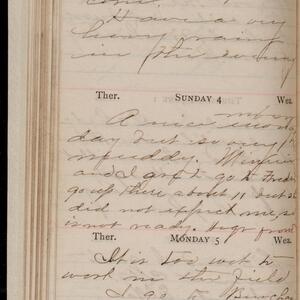 Have a very
heavy rain
in the evening
Ther. SUNDAY 4 Wea.
A nice
day but so very
muddy.
and I get to go to
go up there about 11 but s
did not expect me, so
is not ready.
Ther. MONDAY 5 Wea.
It is too wet to
work in the field
I go to